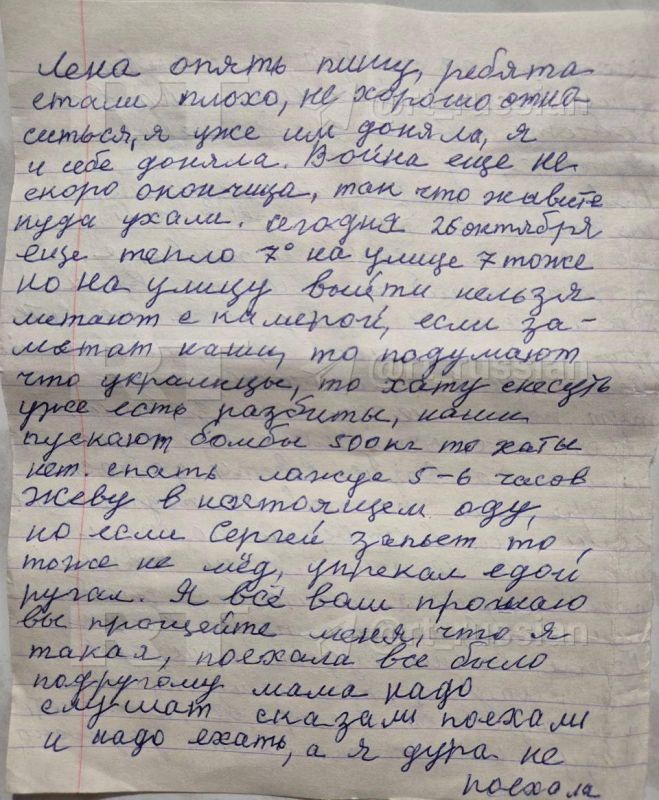 Лена опять пишу, ребята
стали плохо, не хорошо отно-
ситься, я уже им доняла, я
и себе доняла. Война еще не
скоро окончица, так что живите
куда ухали. сегодня 26 октября
еще тепло 7° на улице 7 тоже
но на улицу выйти нельзя
летают с камерой, если за-
метат наши, то подумают
что украиницы, то хату снесуть
уже есть разбиты, наши
пускают бомбы 500 кг то хаты
нет. спать ложуся 5-6 часов
Живу в настоящем аду,
но если Сергей запьет то,
тоже не мёд, упрекал едой
ругал. Я всё вам прощаю
вы прощейте меня, что я
такая, поехала все было
подругому мама надо
слушат сказали поехали
и надо ехать, а я дура не
поехала
@rt_russian
@rt_russian
@rt_russian